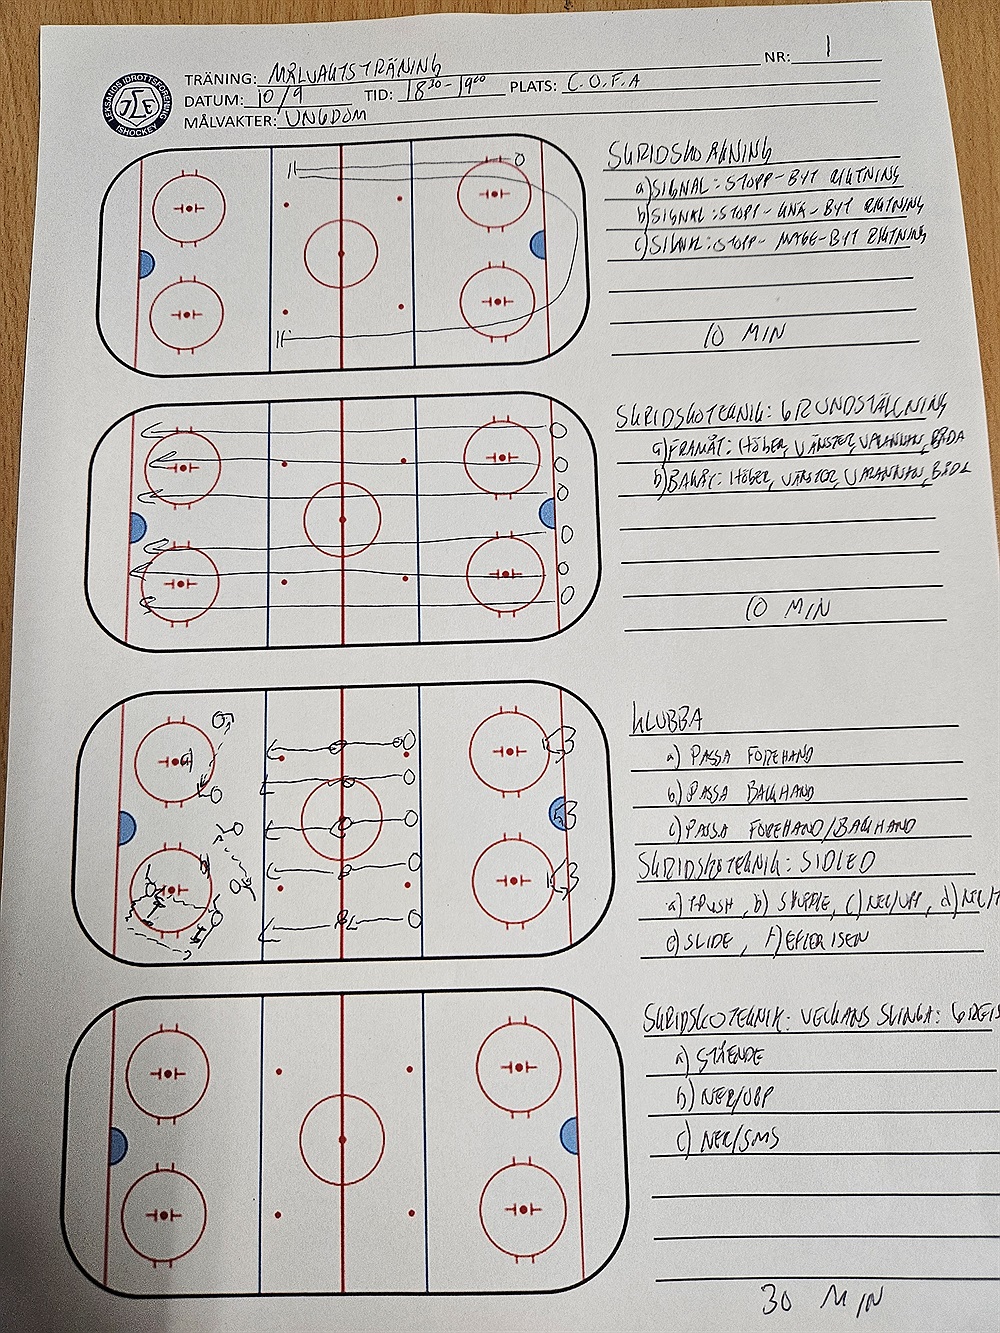 LEKSANDS IDROTTSFÖRENING
ISHOCKEY
TRÄNING: MÅLVAKTSTRÄNING NR: 1
DATUM: 10/9 TID: 18³⁰-19²⁰ PLATS: C.O.F.A
MÅLVAKTER: UNGDOM
SKRIDSKOÅKNING
a) SIGNAL: STOPP - BYT RIKTNING
b) SIGNAL: STOPP - KNÄ - BYT RIKTNING
c) SIGNAL: STOPP - MAGE - BYT RIKTNING
10 MIN
SKRIDSKOTEKNIK: GRUNDSTÄLLNING
a) FRAMÅT: HÖGER, VÄNSTER, VARANNAN, BÅDA
b) BAKÅT: HÖGER, VÄNSTER, VARANNAN, BÅDA
10 MIN
KLUBBA
a) PASSA FOREHAND
b) PASSA BACKHAND
c) PASSA FOREHAND/BACKHAND
SKRIDSKOTEKNIK: SIDLED
a) T-PUSH, b) SHUFFLE, c) NER/UPP, d)
e) SLIDE, f) EFTER ISEN
SKRIDSKOTEKNIK: VECKANS SLINGA:
a) STÅENDE
b) NER/UPP
c) NER/SMS
30 MIN